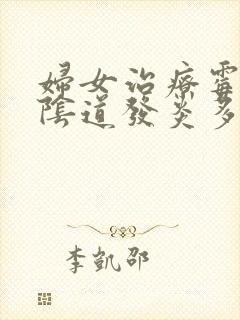 婦女治療霉
陰道發炎多
李凱邵